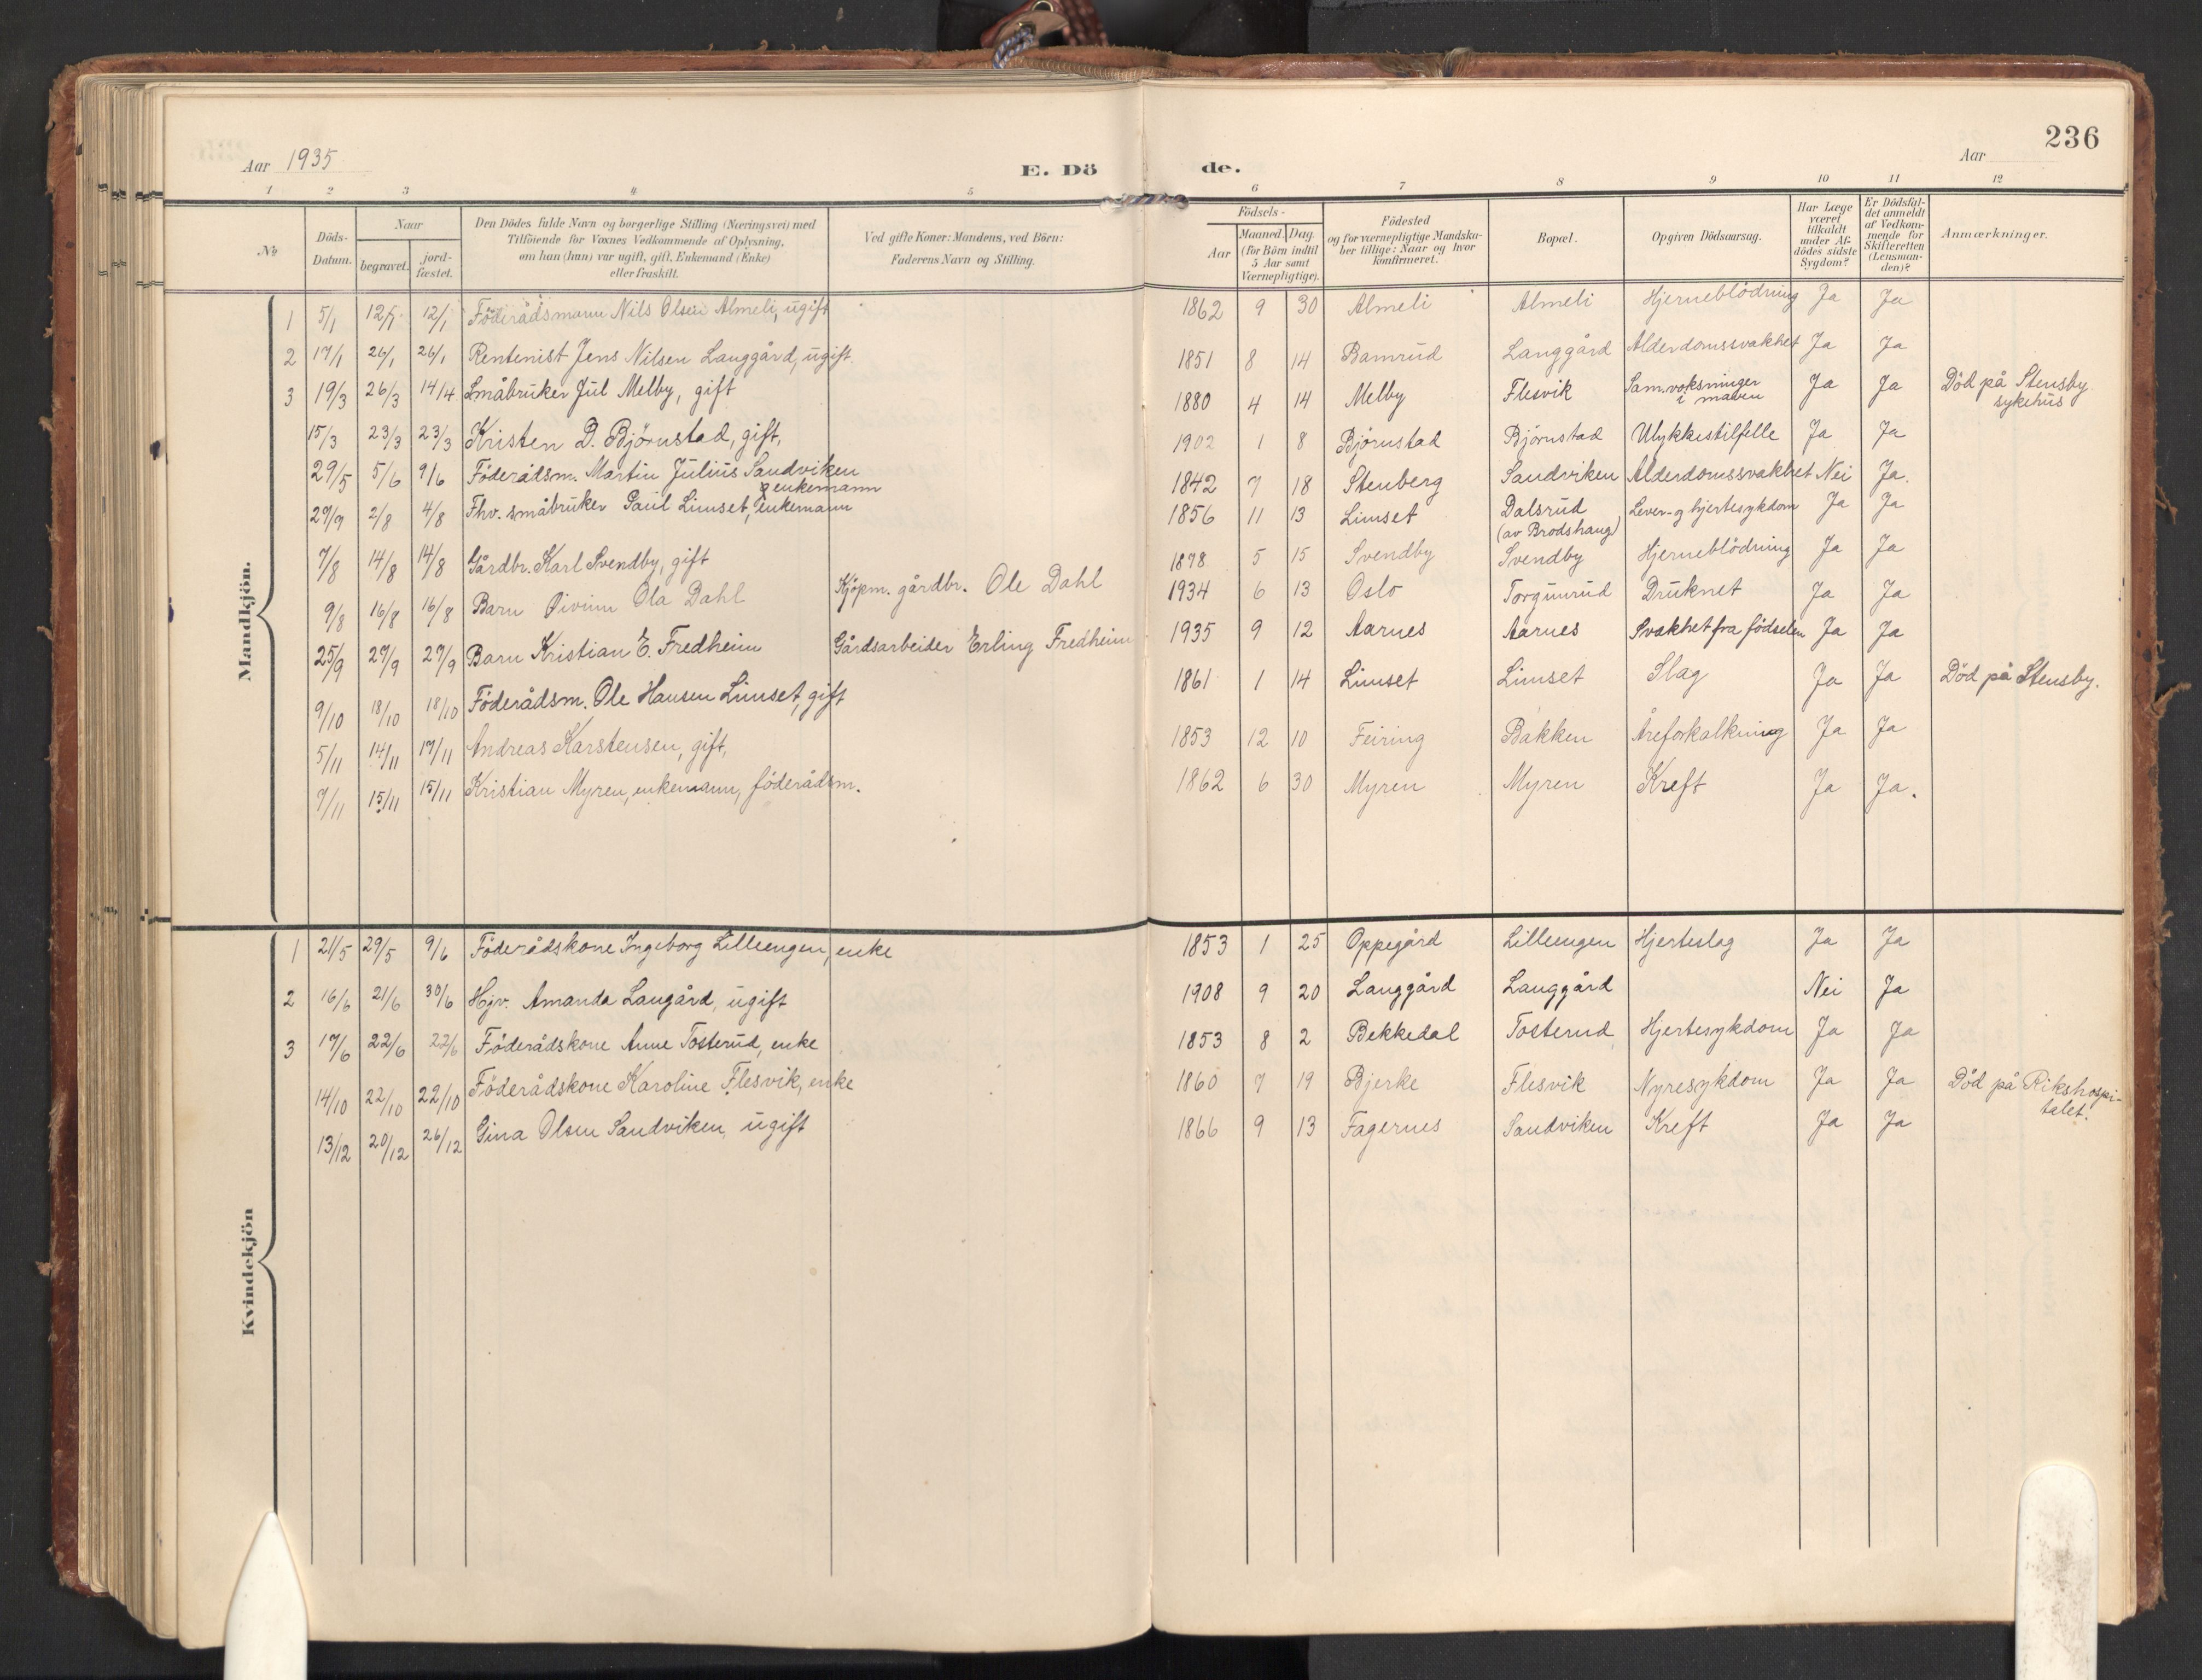 236
Aar 1935
E. Dö de.
Aar
1 2 3 4 5 6 7 8 9 10 11 12
No
Döds-Datum.
Naar
begravet.
jord-fæstet.
Den Dödes fulde Navn og borgerlige Stilling (Næringsvei) med
Tilföiende for Voxnes Vedkommende af Oplysning,
om han (hun) var ugift, gift, Enkemand (Enke)
eller fraskilt.
Ved gifte Koner: Mandens, ved Börn:
Faderens Navn og Stilling.
Födsels-
Aar
Maaned. Dag.
(for Börn indtil
5 Aar samt
Værnepligtige).
Födested
og for værnepligtige Mandska-
ber tillige: Naar og hvor
konfirmeret.
Bopæl.
Opgiven Dödsaarsag.
Har Læge
været
tilkaldt
under Af-
dödes sidste
Sygdom?
Er Dödsfal-
det anmeldt
af Vedkom-
mende for
Skifteretten
(Lensman-
den)?
Anmærkninger.
Mandkjön.
1 5/1 12/1 12/1 Föderådsmann Nils Olsen Almeli, ugift 1862 9 30 Almeli Almeli Hjerneblödning Ja Ja
2 17/1 26/1 26/1 Rentenist Jens Nilsen Langgård, ugift. 1851 8 14 Bamrud Langgård Alderdomssvakhet Ja Ja
3 19/3 26/3 14/4 Småbruker Jul Melby, gift 1880 4 14 Melby Flesvik Sam.voksninger i maven Ja Ja Död på Stensby sykehus
15/3 23/3 23/3 Kristen D. Björnstad, gift, 1902 1 8 Björnstad Björnstad Ulykkestilfelle Ja Ja
29/5 5/6 9/6 Föderådsm. Martin Julius Sandviken enkemann 1842 7 18 Stenberg Sandviken Alderdomssvakhet Nei Ja.
2/8 4/8 Fhv. småbruker Paul Limset, enkemann 1856 11 13 Limset Dalsrud (av Brodshaug) Lever- og hjertesykdom Ja Ja
7/8 14/8 14/8 Gårdbr. Karl Svendby, gift 1878 5 15 Svendby Svendby Hjerneblödning Ja Ja
9/8 16/8 16/8 Barn Öivinn Ola Dahl Kjöpm. gårdbr. Ole Dahl 1934 6 13 Oslo Torgunrud Druknet Ja Ja
25/9 27/9 27/9 Barn Kristian E. Fredheim Gårdsarbeider Erling Fredheim 1935 9 12 Aarnes Aarnes Svakhet fra födselen Ja Ja
9/10 18/10 18/10 Föderådsm. Ole Hansen Limset, gift 1861 1 14 Limset Limset Slag Ja Ja Död på Stensby.
5/11 14/11 17/11 Andreas Karstensen, gift, 1853 12 10 Feiring Bakken Åreforkalkning Ja Ja
7/11 15/11 15/11 Kristian Myren, enkemann, föderådsm. 1862 6 30 Myren Myren Kreft Ja Ja.
Kvindekjön
1 21/5 29/5 9/6 Föderådskone Ingeborg Lilleengen, enke 1853 1 25 Oppegård Lilleengen Hjerteslag Ja Ja
2 16/6 21/6 30/6 Hjv. Amanda Langård, ugift 1908 9 20 Langgård Langgård Nei Ja
3 17/6 22/6 22/6 Föderådskone Anne Tosterud, enke 1853 8 2 Bekkedal Tosterud Hjertesykdom Ja Ja
14/10 22/10 22/10 Föderådskone Karoline Flesvik, enke 1860 7 19 Bjerke Flesvik Nyresykdom Ja Ja Död på Rikshospi-talet.
13/12 20/12 26/12 Gina Olsen Sandviken, ugift 1866 9 13 Fagernes Sandviken Kreft Ja Ja